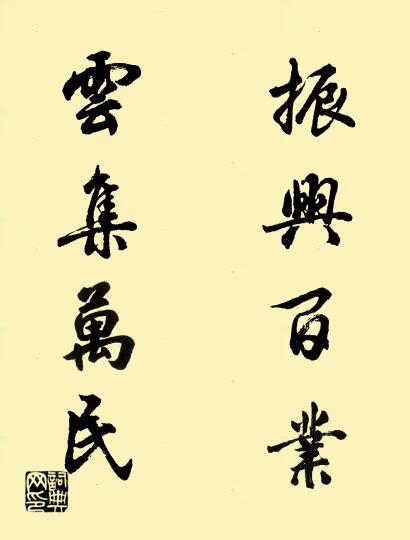 振興百業
雲集萬民
詞典网印